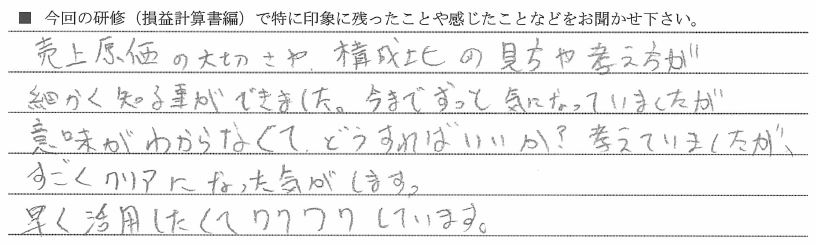 ■ 今回の研修（損益計算書編）で特に印象に残ったことや感じたことなどをお聞かせ下さい。
売上原価の大切さや、構成比の見方や考え方が
細かく知る事ができました。今までずっと気になっていましたが
意味がわからなくて、どうすればいいか？考えていましたが、
すごくクリアになった気がします。
早く活用したくてワクワクしています。